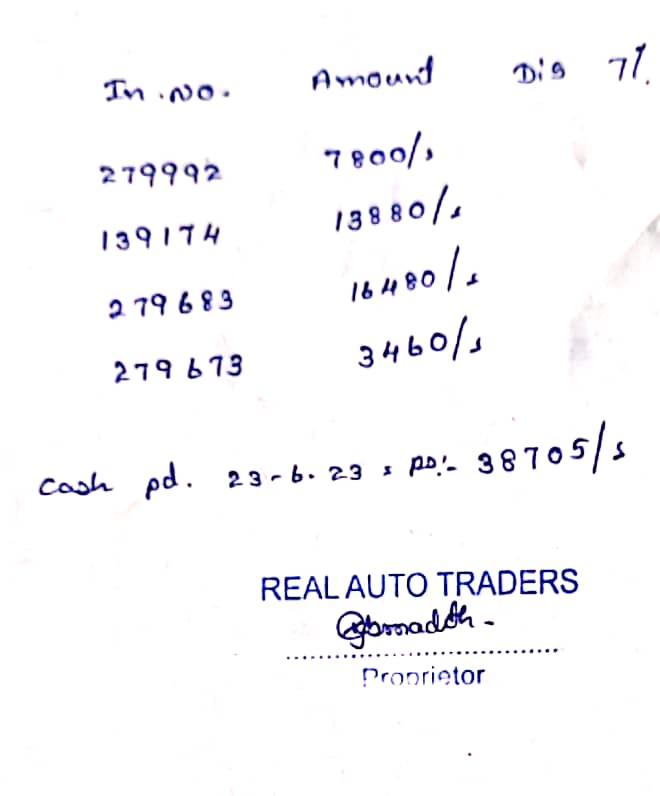 In.No. Amount Dis 7%.
279992 7800/s
139174 13880/s
279683 16480/s
279673 3460/s
Cash pd. 23-6.23 s 38705/s
REAL AUTO TRADERS
Proprietor